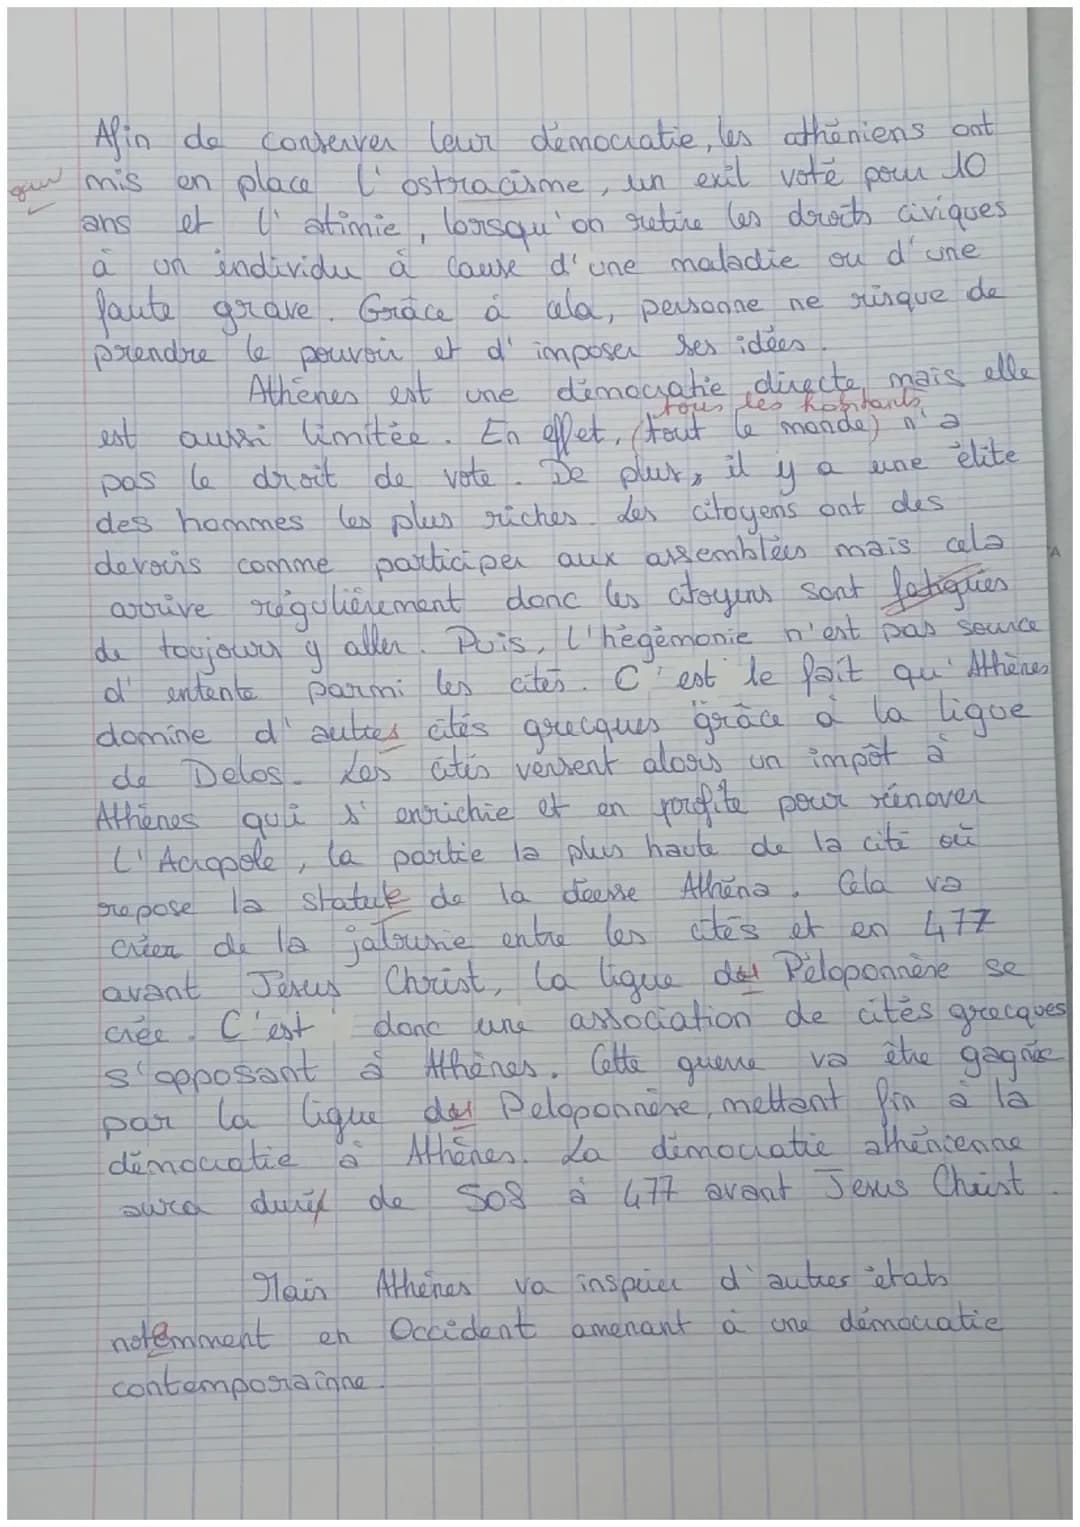 Afin de conserver leur démocratie, les athéniens ont
mis en place l'ostracisme, un exil voté pour 10
ans et l'atimie, lorsqu'on retire les droits civiques
à un individu à cause d'une maladie ou d'une
faute grave. Grâce à cela, personne ne risque de
prendre le pouvoir et d'imposer ses idées.
Athènes est une démocratie directe, mais elle
tous les habitants
est aussi limitée. En effet, (tout le monde) n'a
pas le droit de vote. De plus, il y a une élite
des hommes les plus riches. Les citoyens ont des
devoirs comme participer aux assemblées mais cela
arrive régulièrement donc les citoyens sont fatigués
de toujours y aller. Puis, l'hégémonie n'est pas source
d'entente parmi les cités. C'est le fait qu'Athènes
domine d'autres cités grecques grâce à la ligue
de Delos. Les cités versent alors un impôt à
Athènes qui s'enrichie et en profite pour rénover
L'Acropole, la partie la plus haute de la cité où
repose la statue de la déesse Athéna. Cela va
créer de la jalousie entre les cités et en 477
avant Jésus Christ, la ligue du Péloponnèse se
crée. C'est donc une association de cités grecques
s'opposant à Athènes. Cette guerre va être gagnée
par la ligue du Péloponnèse, mettant fin à la
démocratie à Athènes. La démocratie athénienne
aura duré de 508 à 477 avant Jesus Christ.
Mais Athènes va inspirer d'autres états
notemment en Occident amenant à une démocratie
contemporainne.